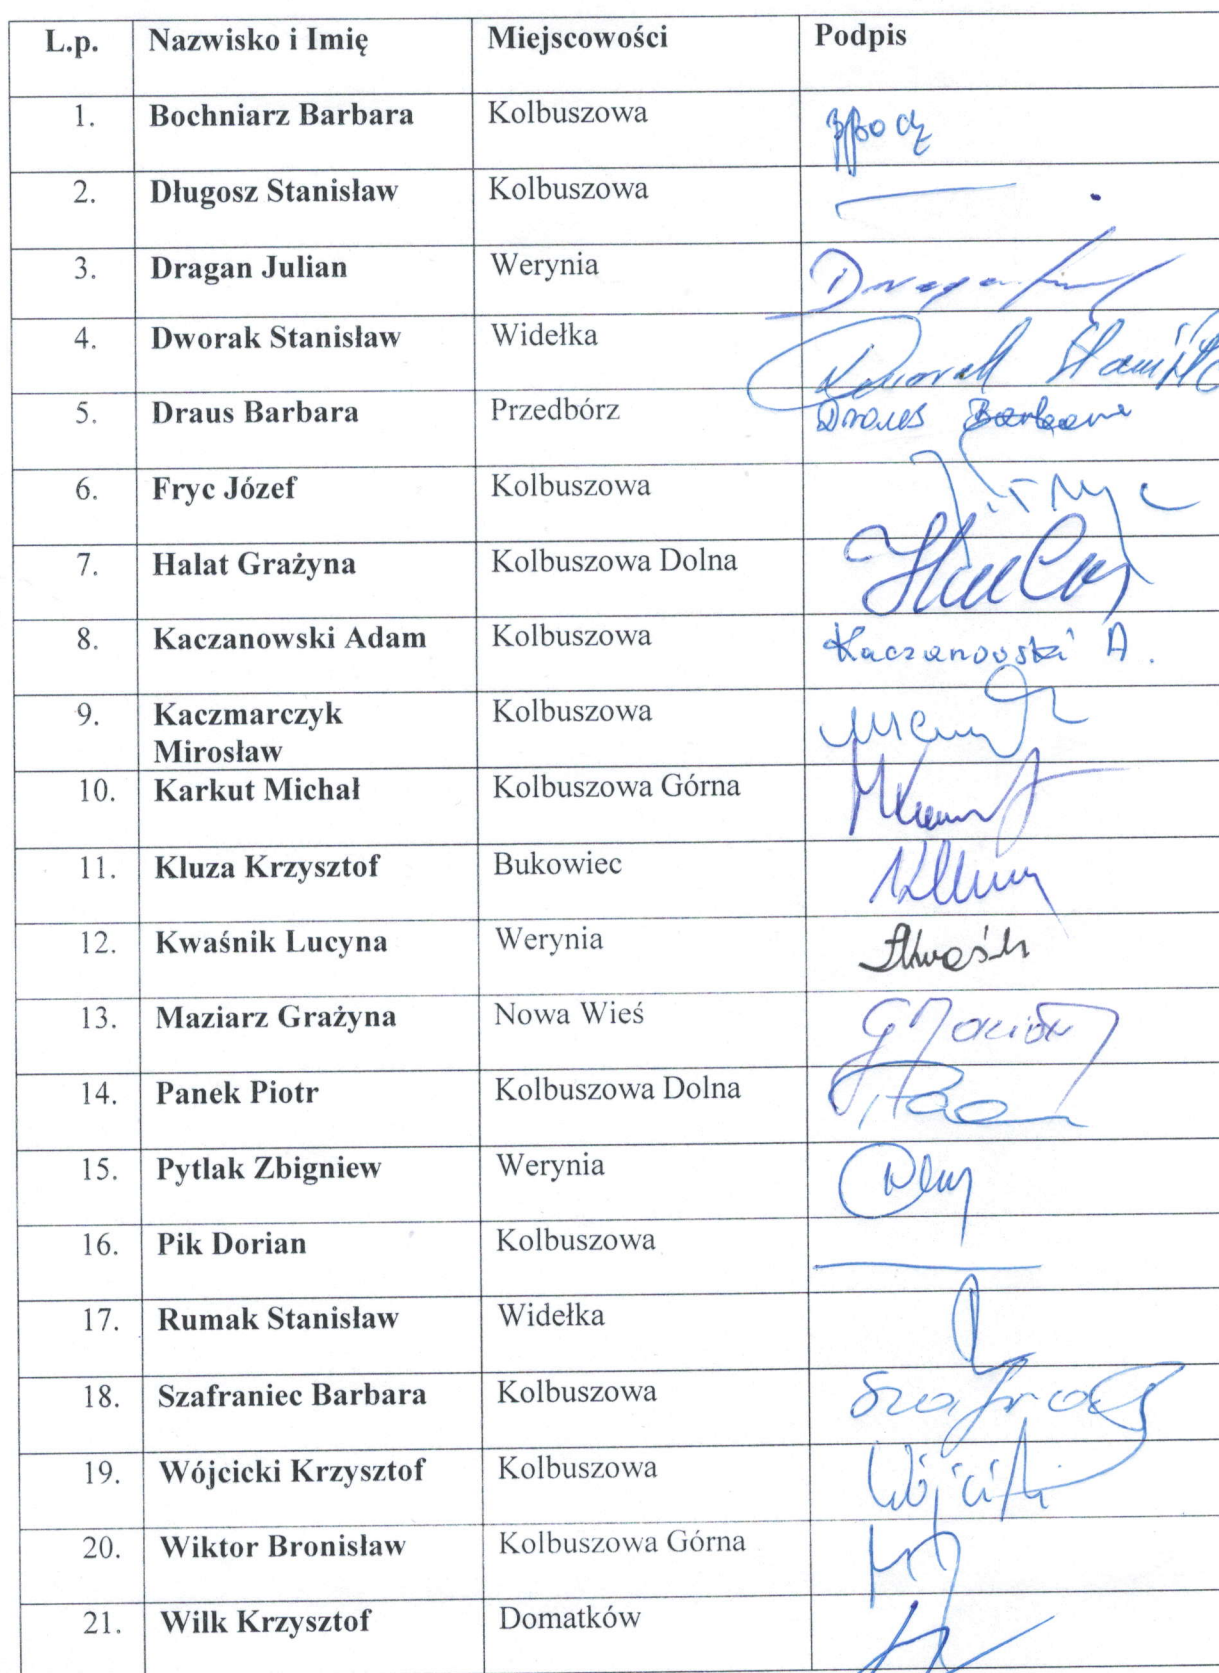 L.p. Nazwisko i Imię Miejscowości Podpis
1. Bochniarz Barbara Kolbuszowa
2. Długosz Stanisław Kolbuszowa
3. Dragan Julian Werynia Dragan
4. Dworak Stanisław Widełka Dworak Stanisław
5. Draus Barbara Przedbórz Draus Barbara
6. Fryc Józef Kolbuszowa J. Fryc
7. Halat Grażyna Kolbuszowa Dolna
8. Kaczanowski Adam Kolbuszowa Kaczanowski A.
9. Kaczmarczyk Kolbuszowa
Mirosław
10. Karkut Michał Kolbuszowa Górna
11. Kluza Krzysztof Bukowiec
12. Kwaśnik Lucyna Werynia
13. Maziarz Grażyna Nowa Wieś
14. Panek Piotr Kolbuszowa Dolna
15. Pytlak Zbigniew Werynia
16. Pik Dorian Kolbuszowa
17. Rumak Stanisław Widełka
18. Szafraniec Barbara Kolbuszowa
19. Wójcicki Krzysztof Kolbuszowa
20. Wiktor Bronisław Kolbuszowa Górna
21. Wilk Krzysztof Domatków